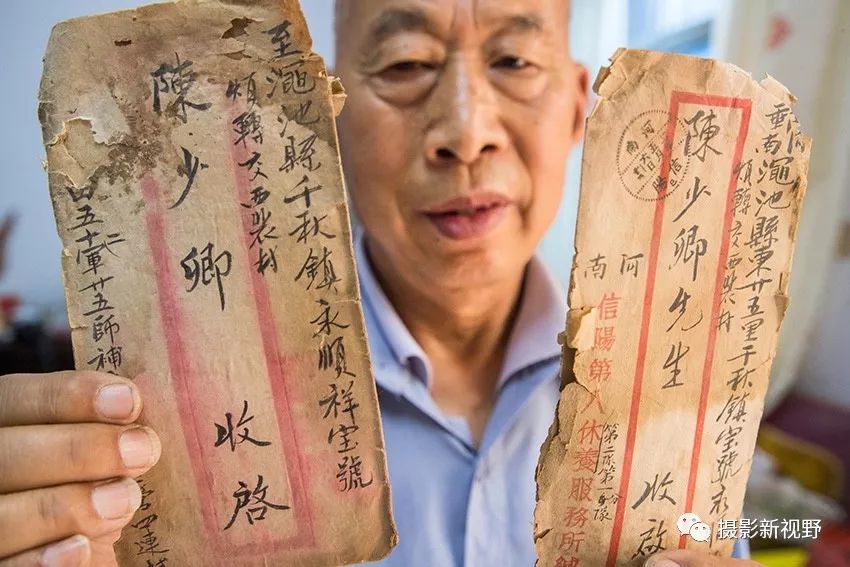 至澠池縣千秋鎮永順祥宝號
煩轉交西裴村
陳少卿 收啓
軍廿五師補
四連
澠池縣東廿五里千秋鎮宝號永
煩轉交西裴村
陳少卿先生 收啟
河南
信陽第八休養服務所
第二隊第一分隊
摄影新视野